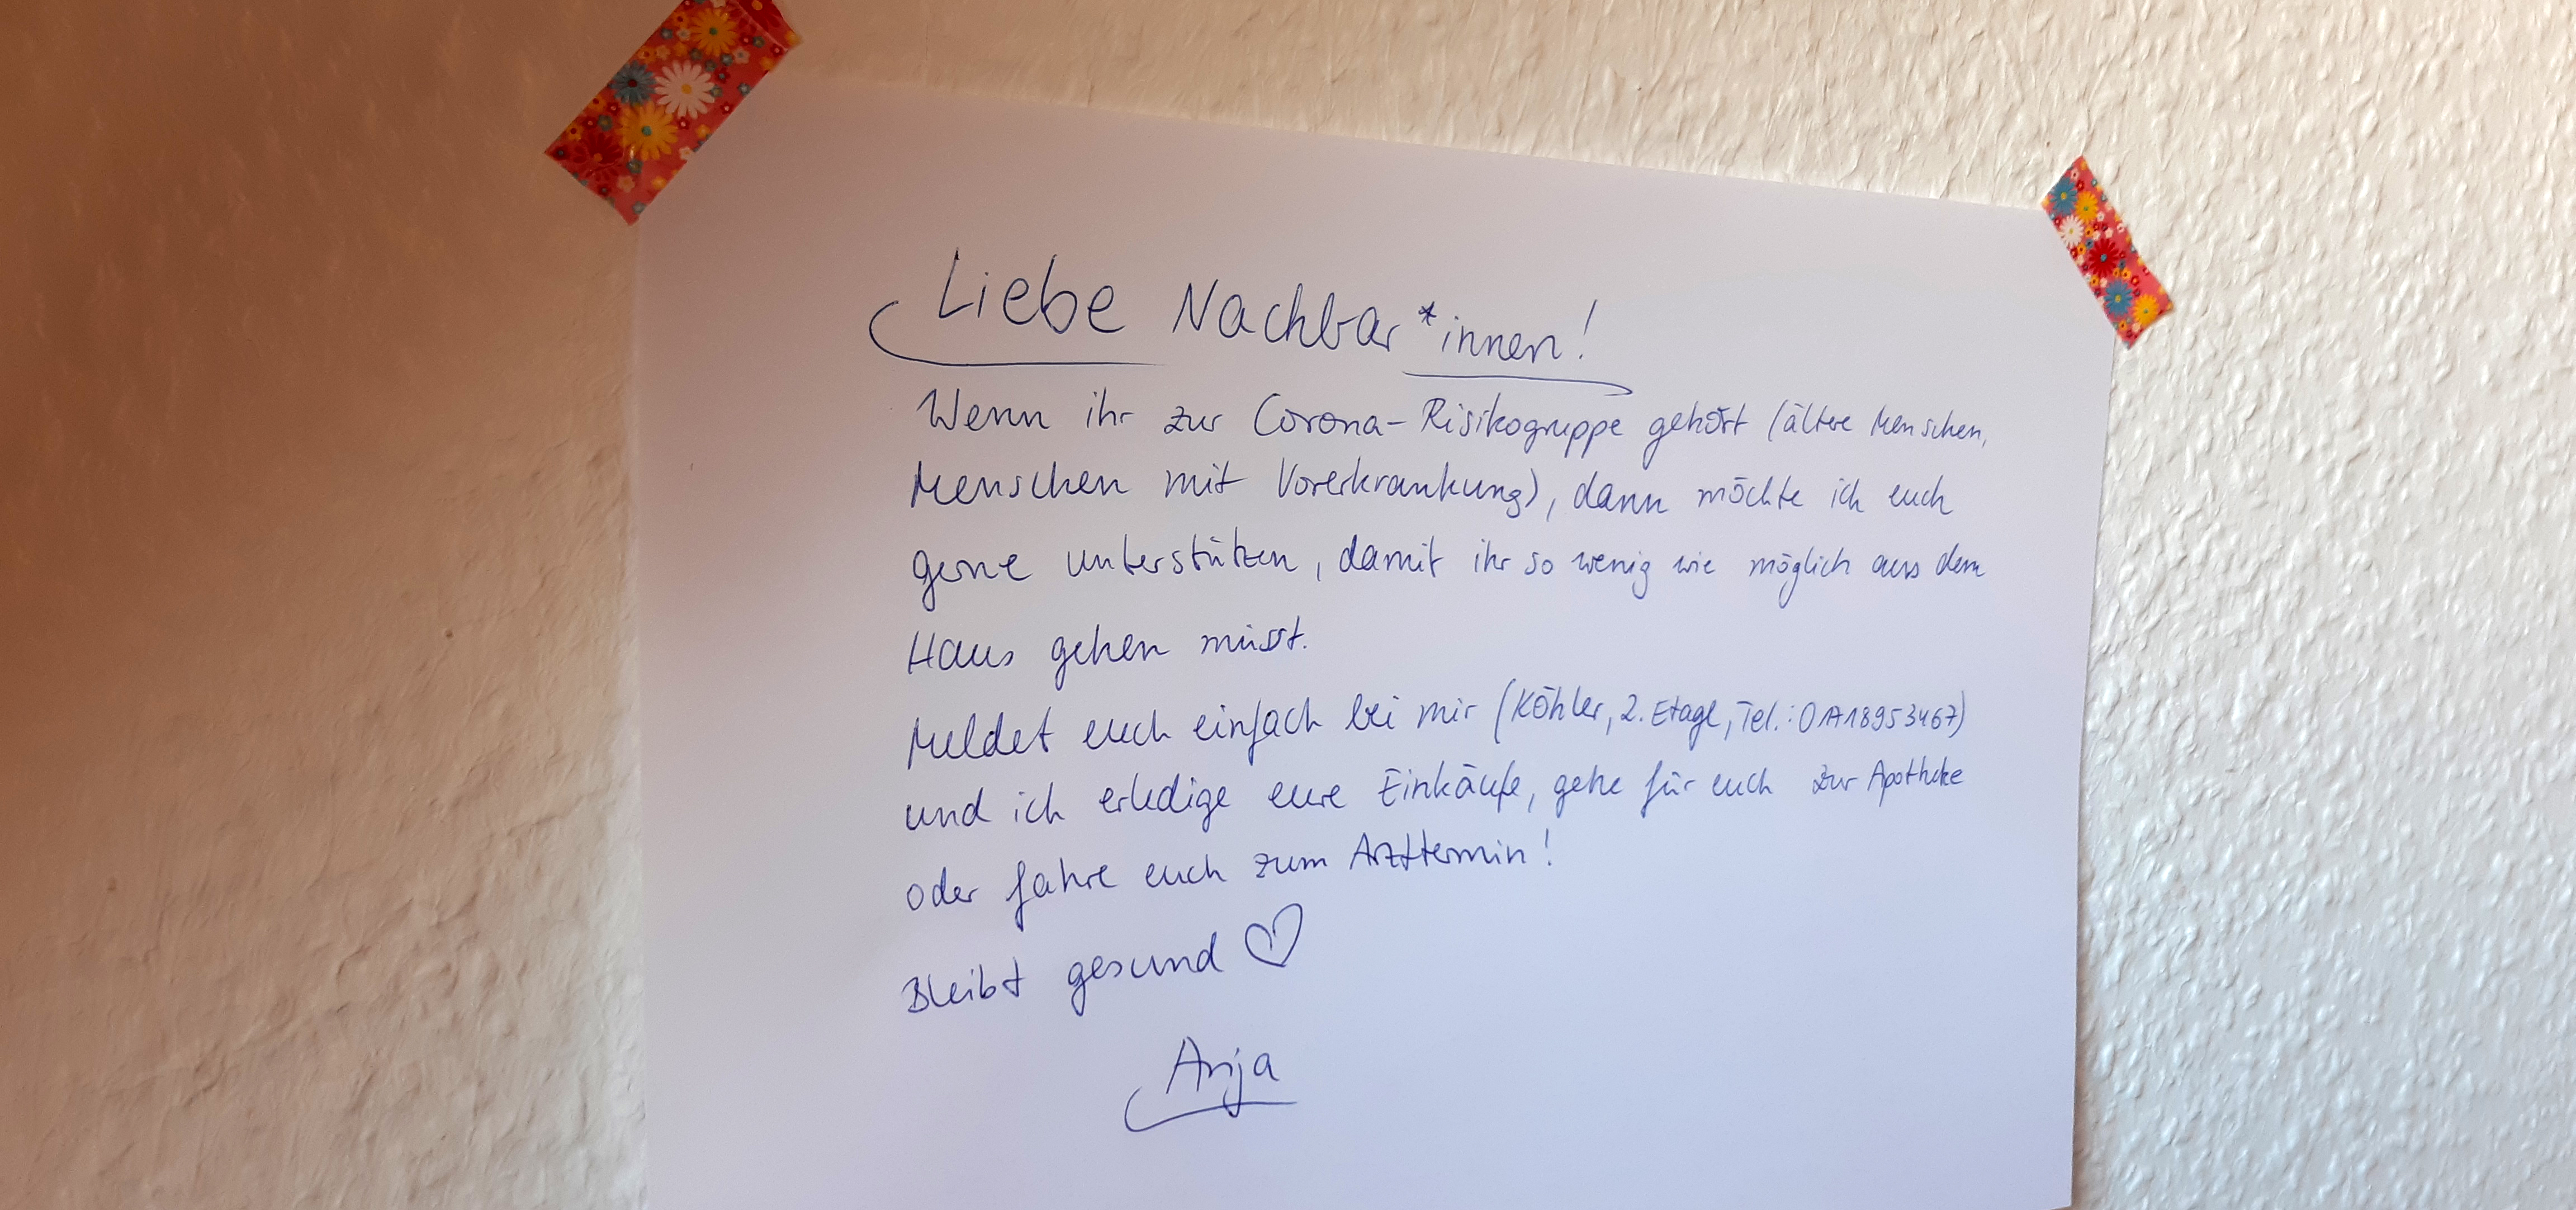 Liebe Nachbar*innen!
Wenn ihr zur Corona-Risikogruppe gehört (ältere Menschen,
Menschen mit Vorerkrankung), dann möchte ich euch
gerne unterstützen, damit ihr so wenig wie möglich aus dem
Haus gehen müsst.
Meldet euch einfach bei mir (Köhler, 2. Etage, Tel.:
und ich erledige eure Einkäufe, gehe für euch zur Apotheke
oder fahre euch zum Arzttermin!
Bleibt gesund ♡
Anja